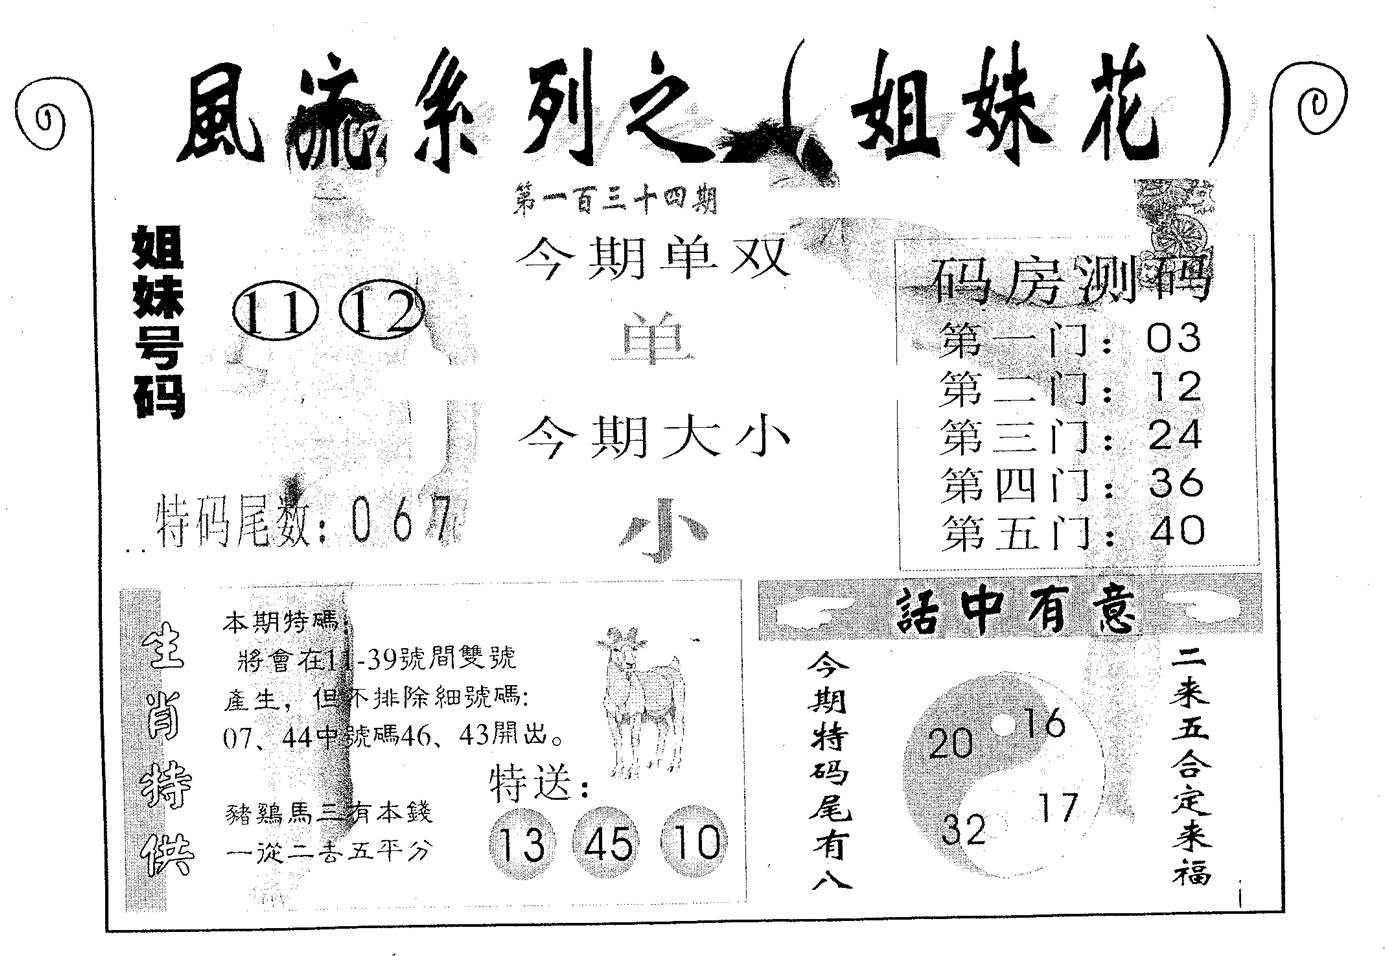 風流系列之（姐妹花）
第一百三十四期
姐妹号码
11 12
特码尾数：0 6 7
今期单双
单
今期大小
小
码房测码
第一门：03
第二门：12
第三门：24
第四门：36
第五门：40
生肖特供
本期特碼，
將會在11-39號間雙號
產生，但不排除細號碼:
07、44中號碼46、43開出。
豬鷄馬三有本錢
一從二去五平分
特送：
13 45 10
話中有意
今期特码尾有八
20 16
32 17
二来五合定来福